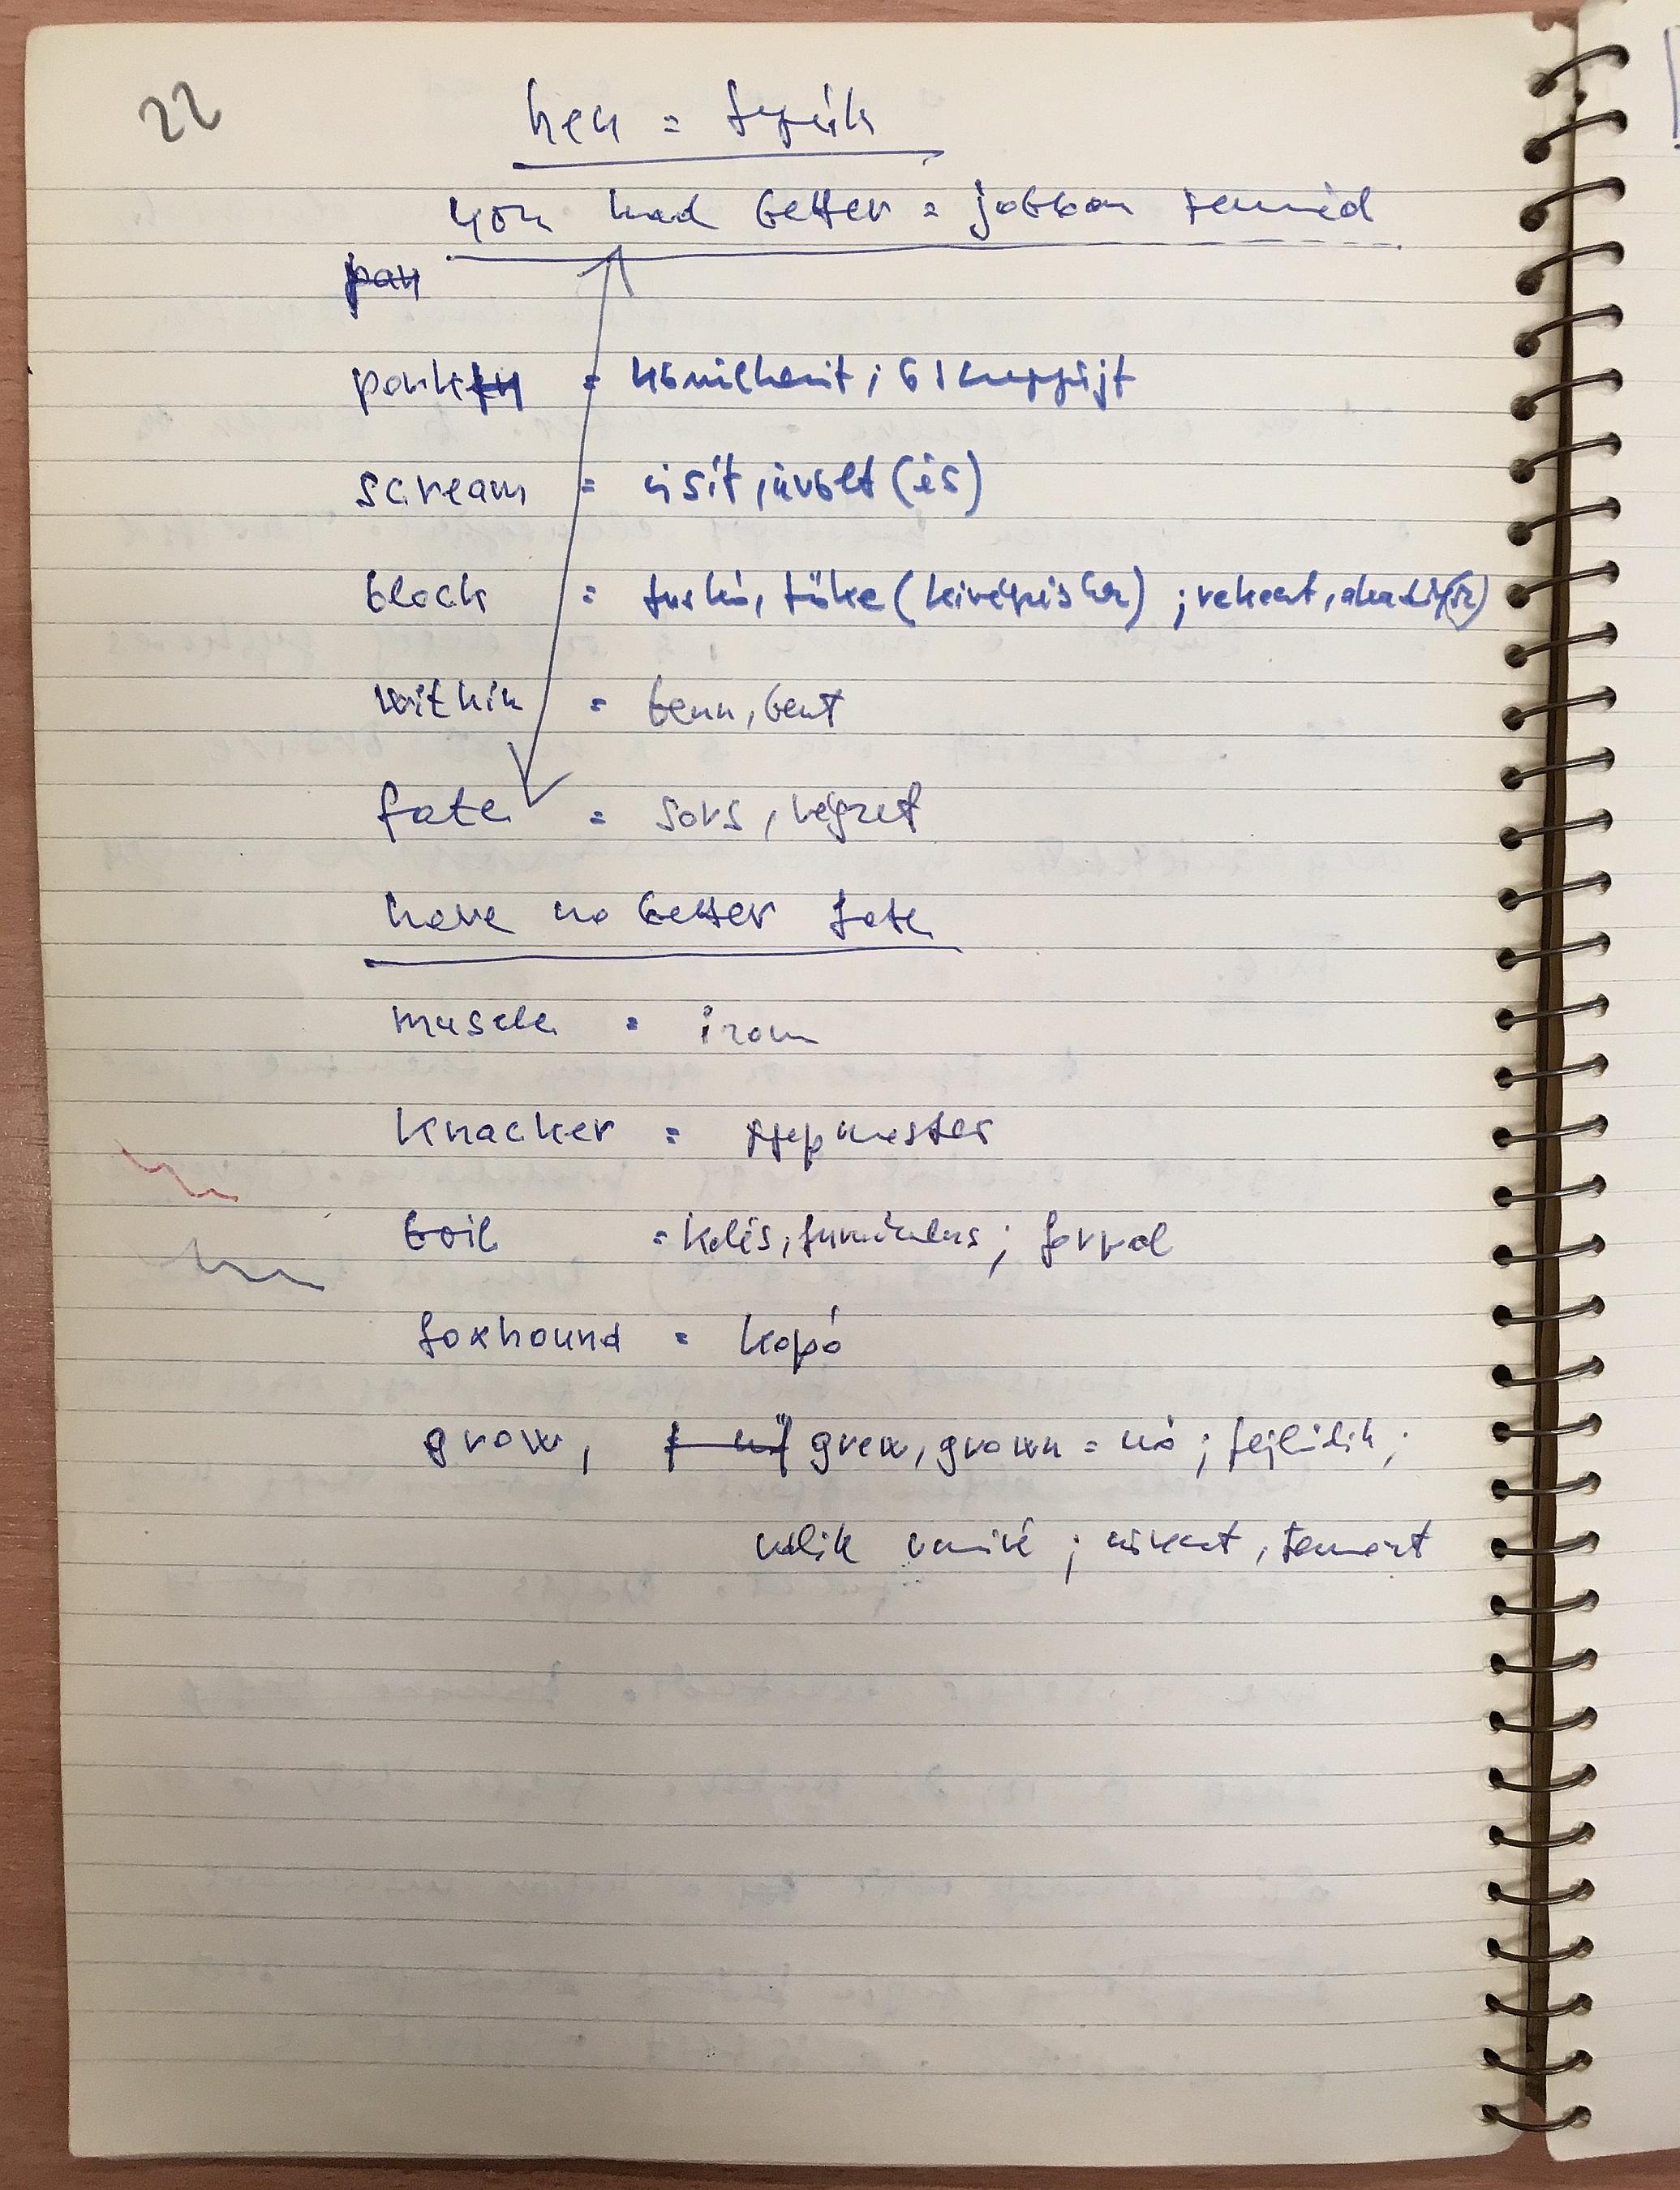 22
hen = tyúk
you had better = jobban tennéd
pan
pork =
scream = visít, üvölt(és)
block = tuskó, tőke (kivégzéshez) ; rekeszt, akadály(oz)
within = benn, bent
fate = sors, végzet
have no better fate
muscle = izom
knacker = gyepmester
boil = kelés, furunkulus; forral
foxhound = kopó
grow, grew, grown = nő; fejlődik;
válik vmivé; növeszt, termeszt